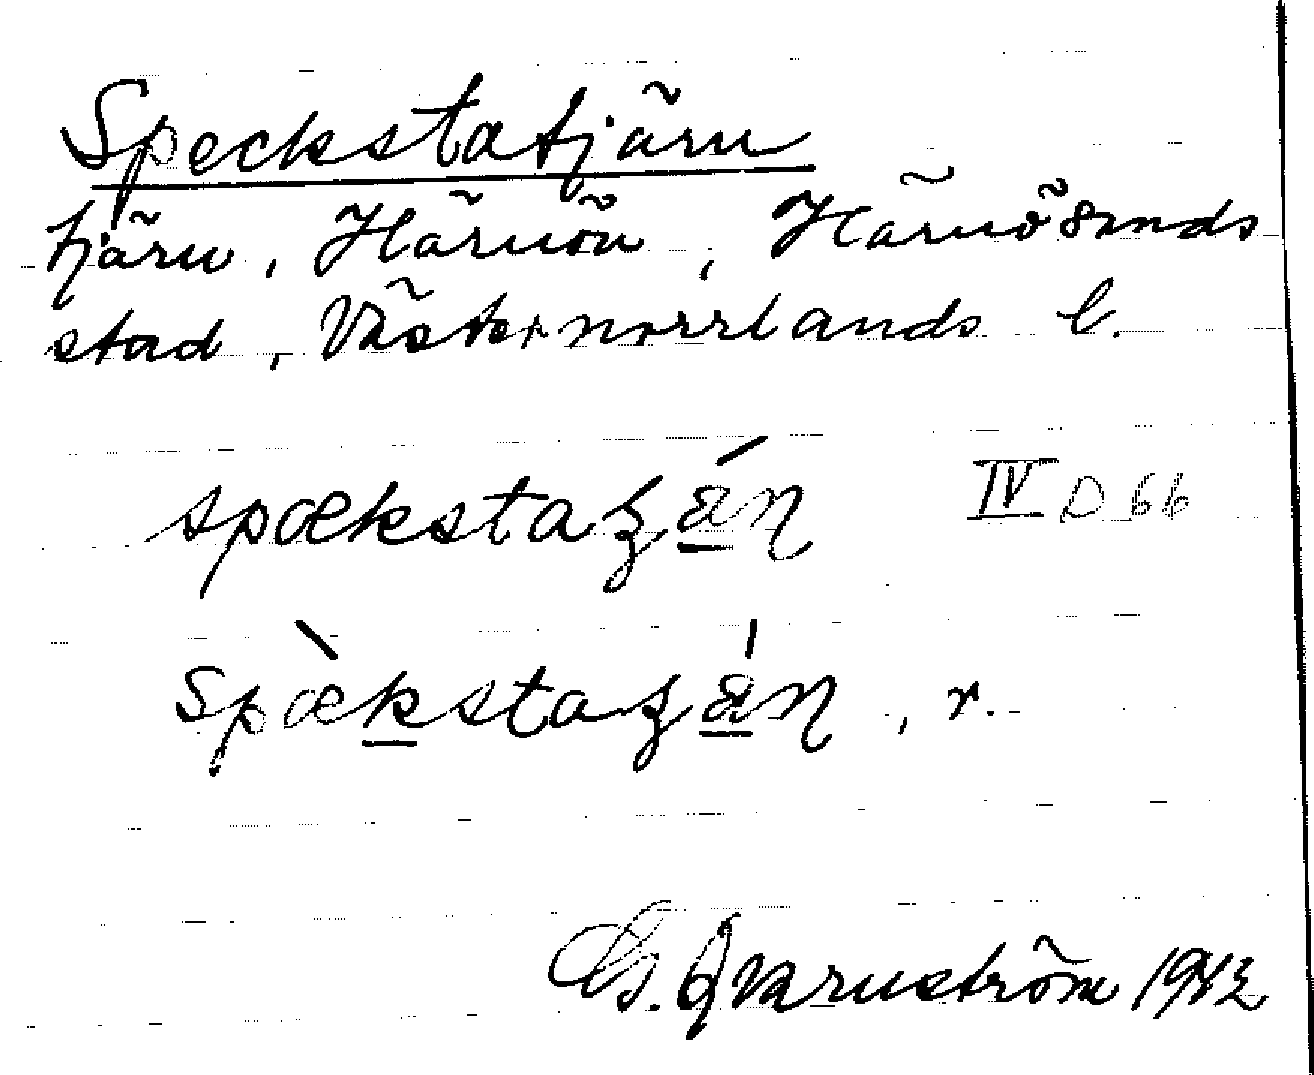 Speckstatjärn
tjärn, Härnön, Härnösands
stad, Västernorrlands l.
spækstaʒá̱ɳ IV D 66
spæ̀ḵstaʒá̱ɳ, r.
G. Qvarnström 1942